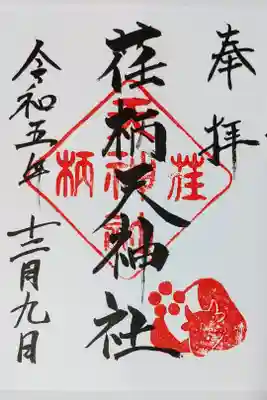 奉拝
荏柄天神社
荏柄天神社
令和五年
十二月九日